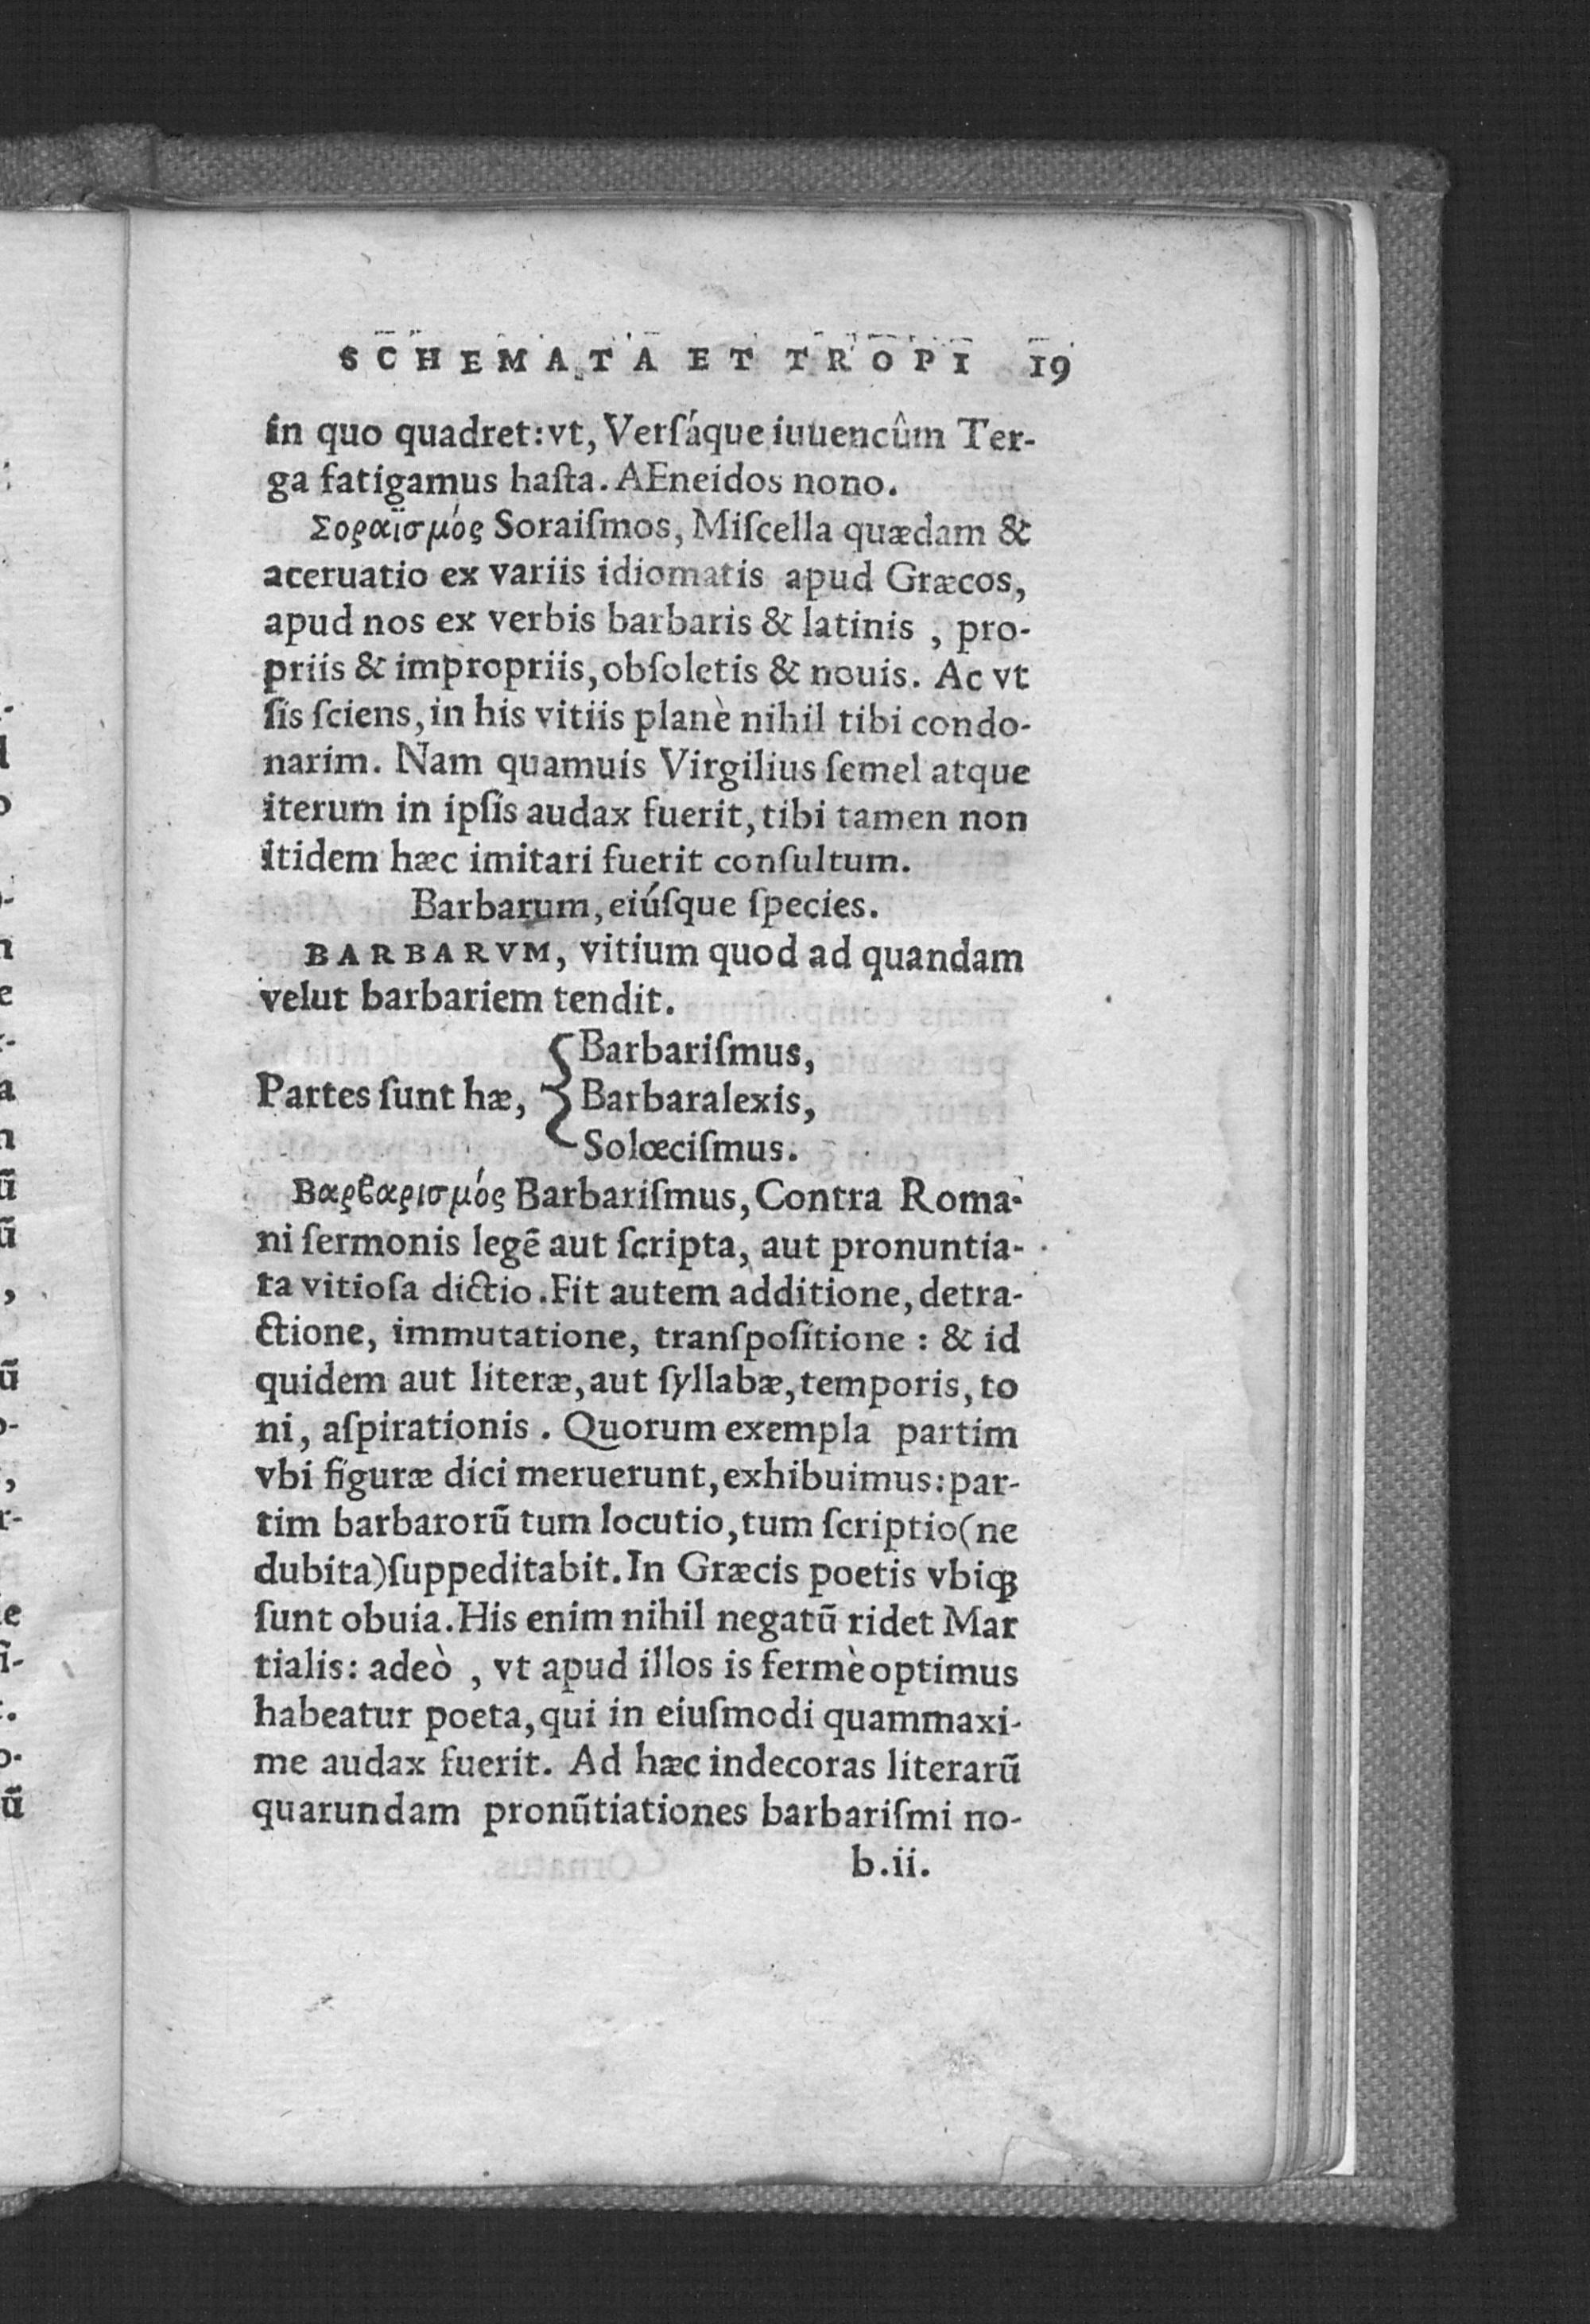 SCHEMATA ET TROPI 19
in quo quadret:vt, Verſáque iuuencûm Ter-
ga fatigamus haſta. AEneidos nono.
Σοραϊσμός Soraiſmos, Miſcella quædam &
aceruatio ex variis idiomatis apud Græcos,
apud nos ex verbis barbaris & latinis , pro-
priis & impropriis, obſoletis & nouis. Ac vt
ſis ſciens, in his vitiis planè nihil tibi condo-
narim. Nam quamuis Virgilius ſemel atque
iterum in ipſis audax fuerit, tibi tamen non
itidem hæc imitari fuerit conſultum.
Barbarum, eiúſque ſpecies.
BARBARVM, vitium quod ad quandam
velut barbariem tendit.
Barbariſmus,
Partes ſunt hæ, { Barbaralexis,
Solœciſmus.
Βαρϐαρισμός Barbariſmus, Contra Roma-
ni ſermonis legē aut ſcripta, aut pronuntia-
ta vitioſa dictio. Fit autem additione, detra-
ctione, immutatione, tranſpoſitione : & id
quidem aut literæ, aut ſyllabæ, temporis, to
ni, aſpirationis . Quorum exempla partim
vbi figuræ dici meruerunt, exhibuimus: par-
tim barbarorū tum locutio, tum ſcriptio (ne
dubita) ſuppeditabit. In Græcis poetis vbiqꝫ
ſunt obuia. His enim nihil negatū ridet Mar
tialis: adeò , vt apud illos is fermè optimus
habeatur poeta, qui in eiuſmodi quammaxi-
me audax fuerit. Ad hæc indecoras literarū
quarundam pronūtiationes barbariſmi no-
b.ii.